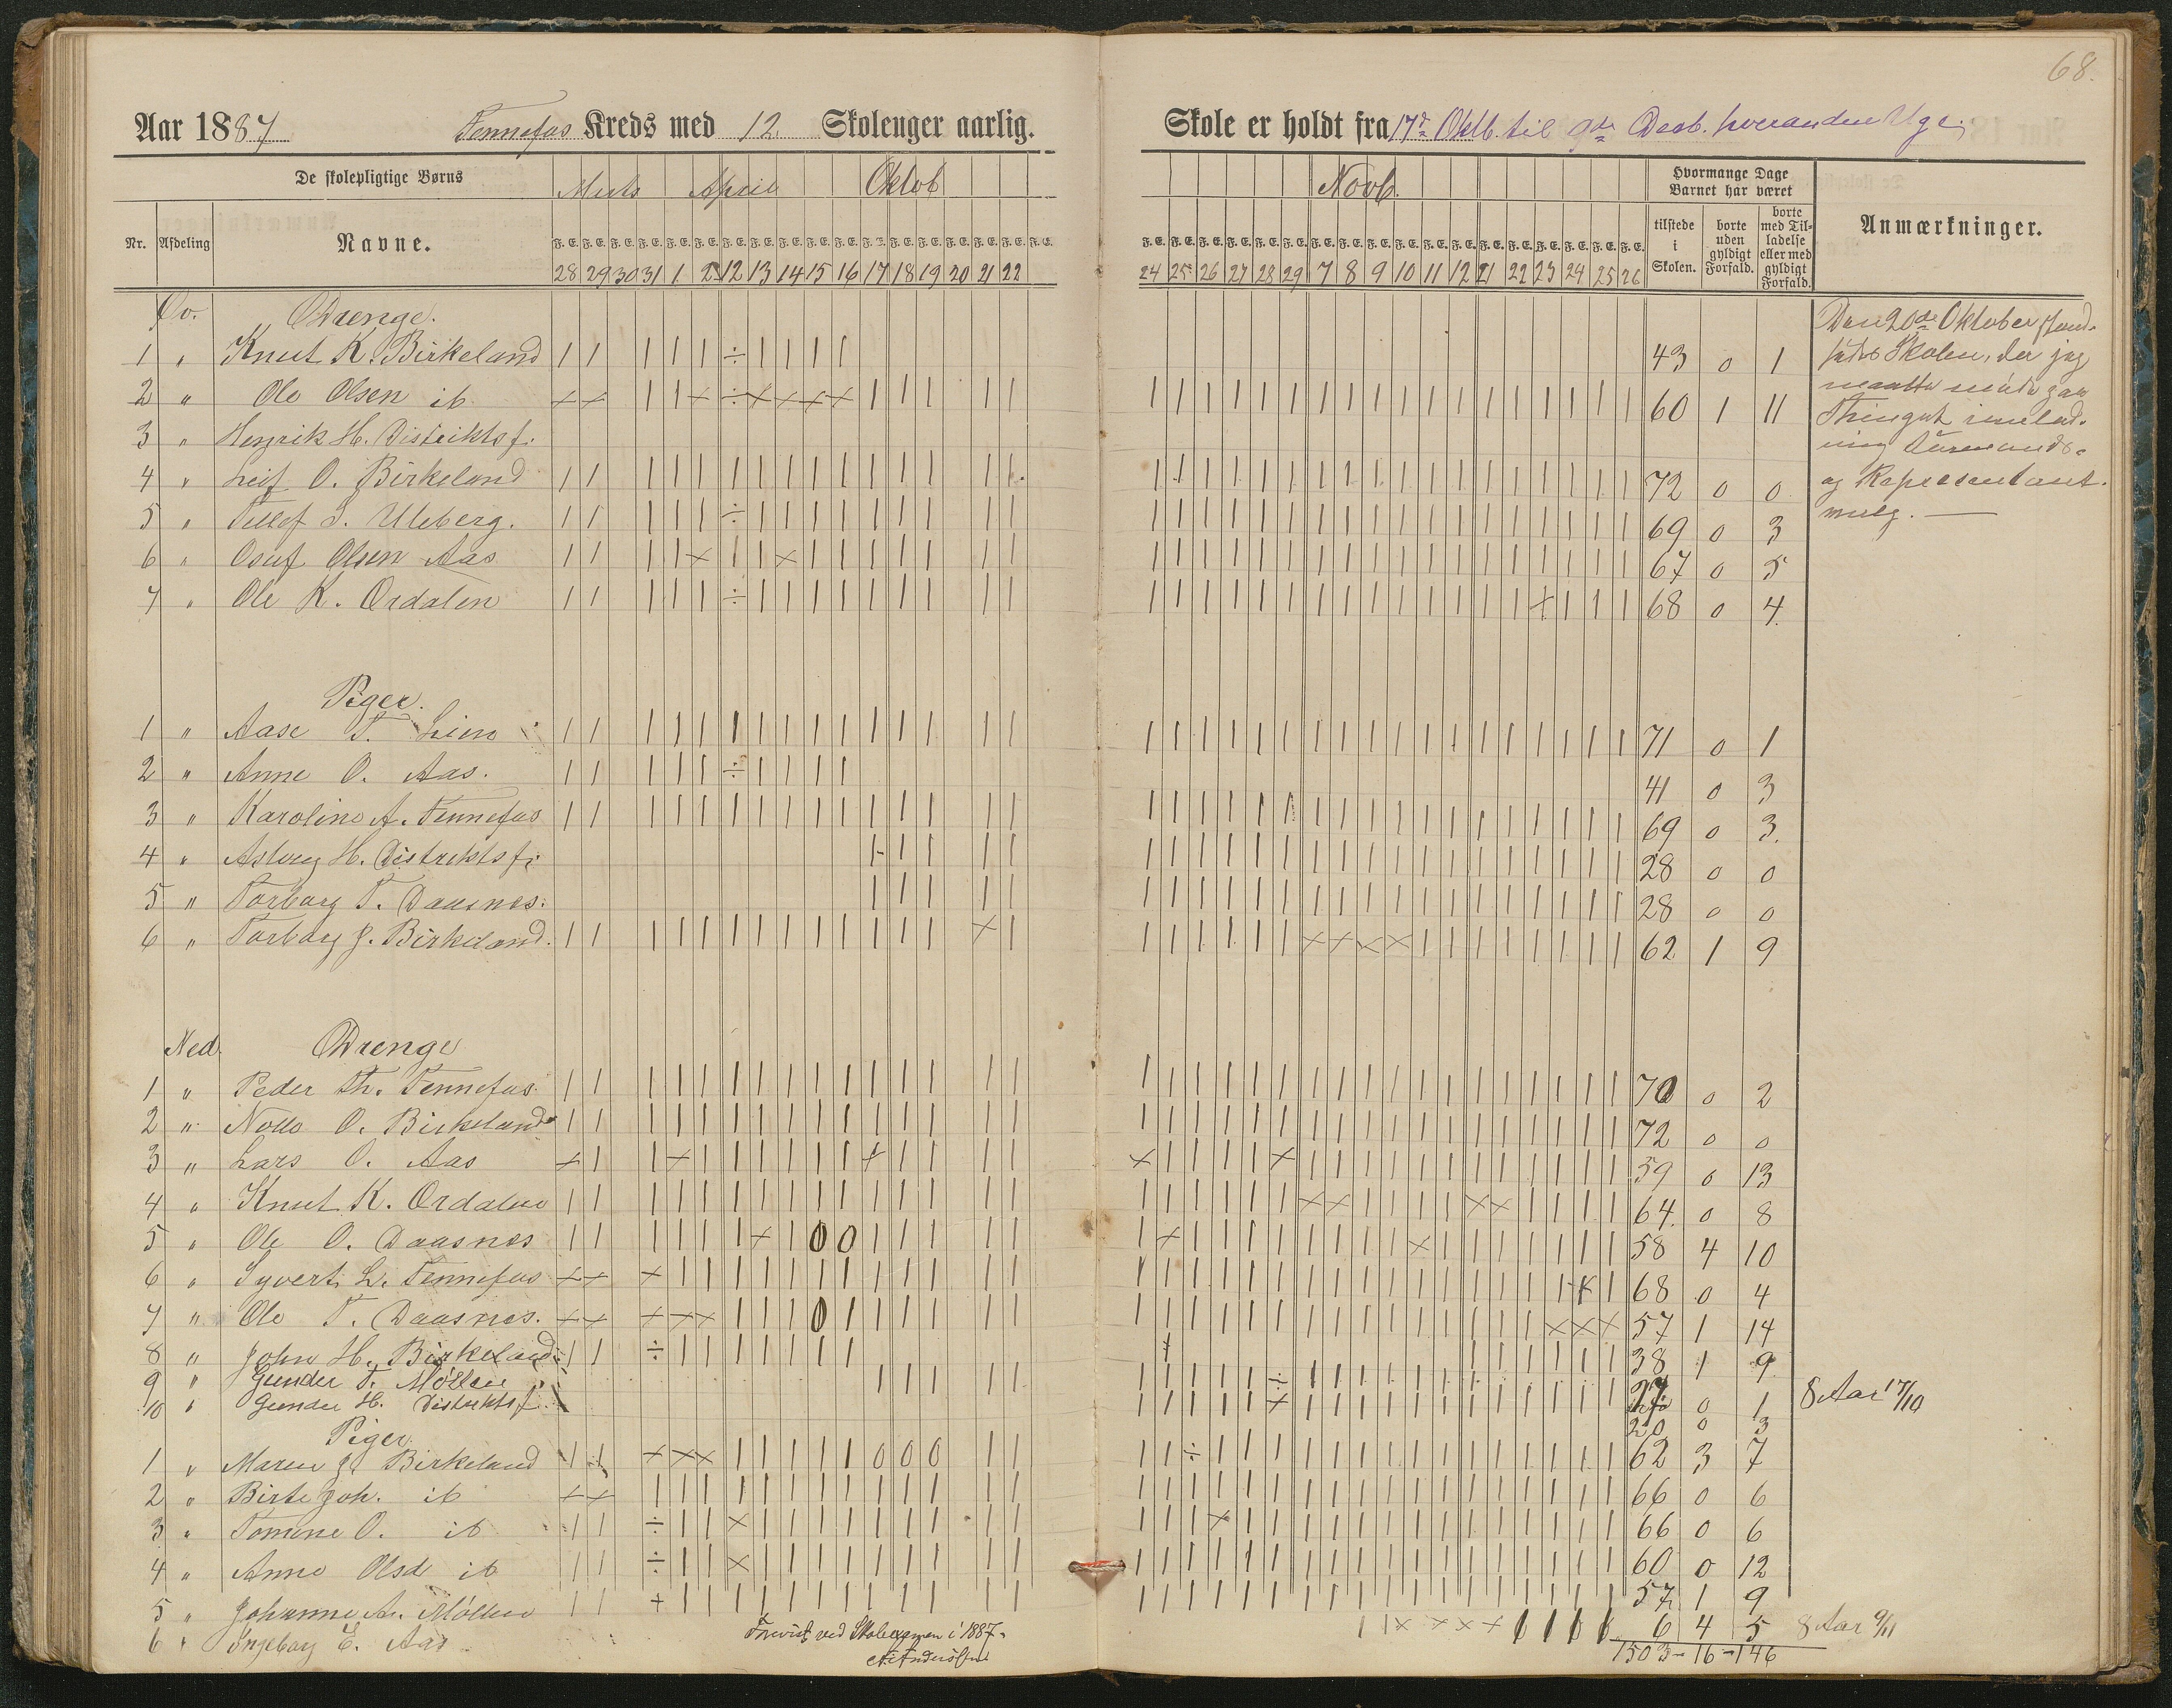 68.
Aar 1887 Tennefos Kreds med 12 Skoleuger aarlig.
Skole er holdt fra 17de Oktb. til 9de Desb. hveranden Uge.
De skolepligtige Børns
Marts April Oktob
Novb.
Hvormange Dage Barnet har været
Nr. Afdeling Navne.
F. E. F. E. F. E. F. E. F. E. F. E. F. E. F. E. F. E. F. E. F. E. F. E. F. E. F. E. F. E. F. E. F. E. F. E.
28 29 30 31 1 2 12 13 14 15 16 17 18 19 20 21 22
24 25 26 27 28 29 7 8 9 10 11 12 21 22 23 24 25 26
tilstede i Skolen.
borte uden gyldigt Forfald.
borte med Tilladelse eller med gyldigt Forfald.
Anmærkninger.
Øv. Drenge.
1 " Knut K. Birkeland 43 0 1
2 " Ole Olsen ib 60 1 11
3 " Henrik H. Distriktsf.
4 " Leif O. Birkeland 72 0 0
5 " Tellef S. Uleberg. 69 0 3
6 " Osuf Olsen Aas 67 0 5
7 " Ole K. Ordalen 68 0 4.
Den 20de Oktober stand-
sedes Skolen, der jeg
maatte møde paa
Thinget
og Repræsentant.
valg.
Piger.
1 " Aase T. Lien 71 0 1
2 " Anne O. Aas. 41 0 3
3 " Karoline A. Tennefos 69 0 3.
4 " Asbørg H. Distriktsf. 28 0 0
5 " Torborg T. Daasnes. 28 0 0
6 " Torborg J. Birkeland. 62 1 9
Ned. Drenge
1 " Peder Th. Tennefos. 70 0 2
2 " Notto O. Birkeland 72 0 0
3 " Lars O. Aas 59 0 13
4 " Knut K. Ordalen 64. 0 8
5 " Ole O. Daasnes 58 4 10
6 " Syvert L. Tennefos 68 0 4
7 " Ole T. Daasnes. 57 1 14
8 " John H. Birkeland 38 1 9
9 " Gunder T. Møllen 27 0 1 8 Aar 17/10
10 " Gunder H. Distriktsf. 20 0 3
Piger
1 " Maren J. Birkeland 62 3 7
2 " Birte Joh. ib 66 0 6
3 " Tomine O. ib 66 0 6
4 " Anne Olsd. ib 60 0 12
5 " Johanne A. Møllen 57 1 9
6 " Ingeborg E. Aas 6 4 5 8 Aar 9/11
1503 - 16 - 146
Forevist ved Skoleexamen i 1887.
A. Anderssen